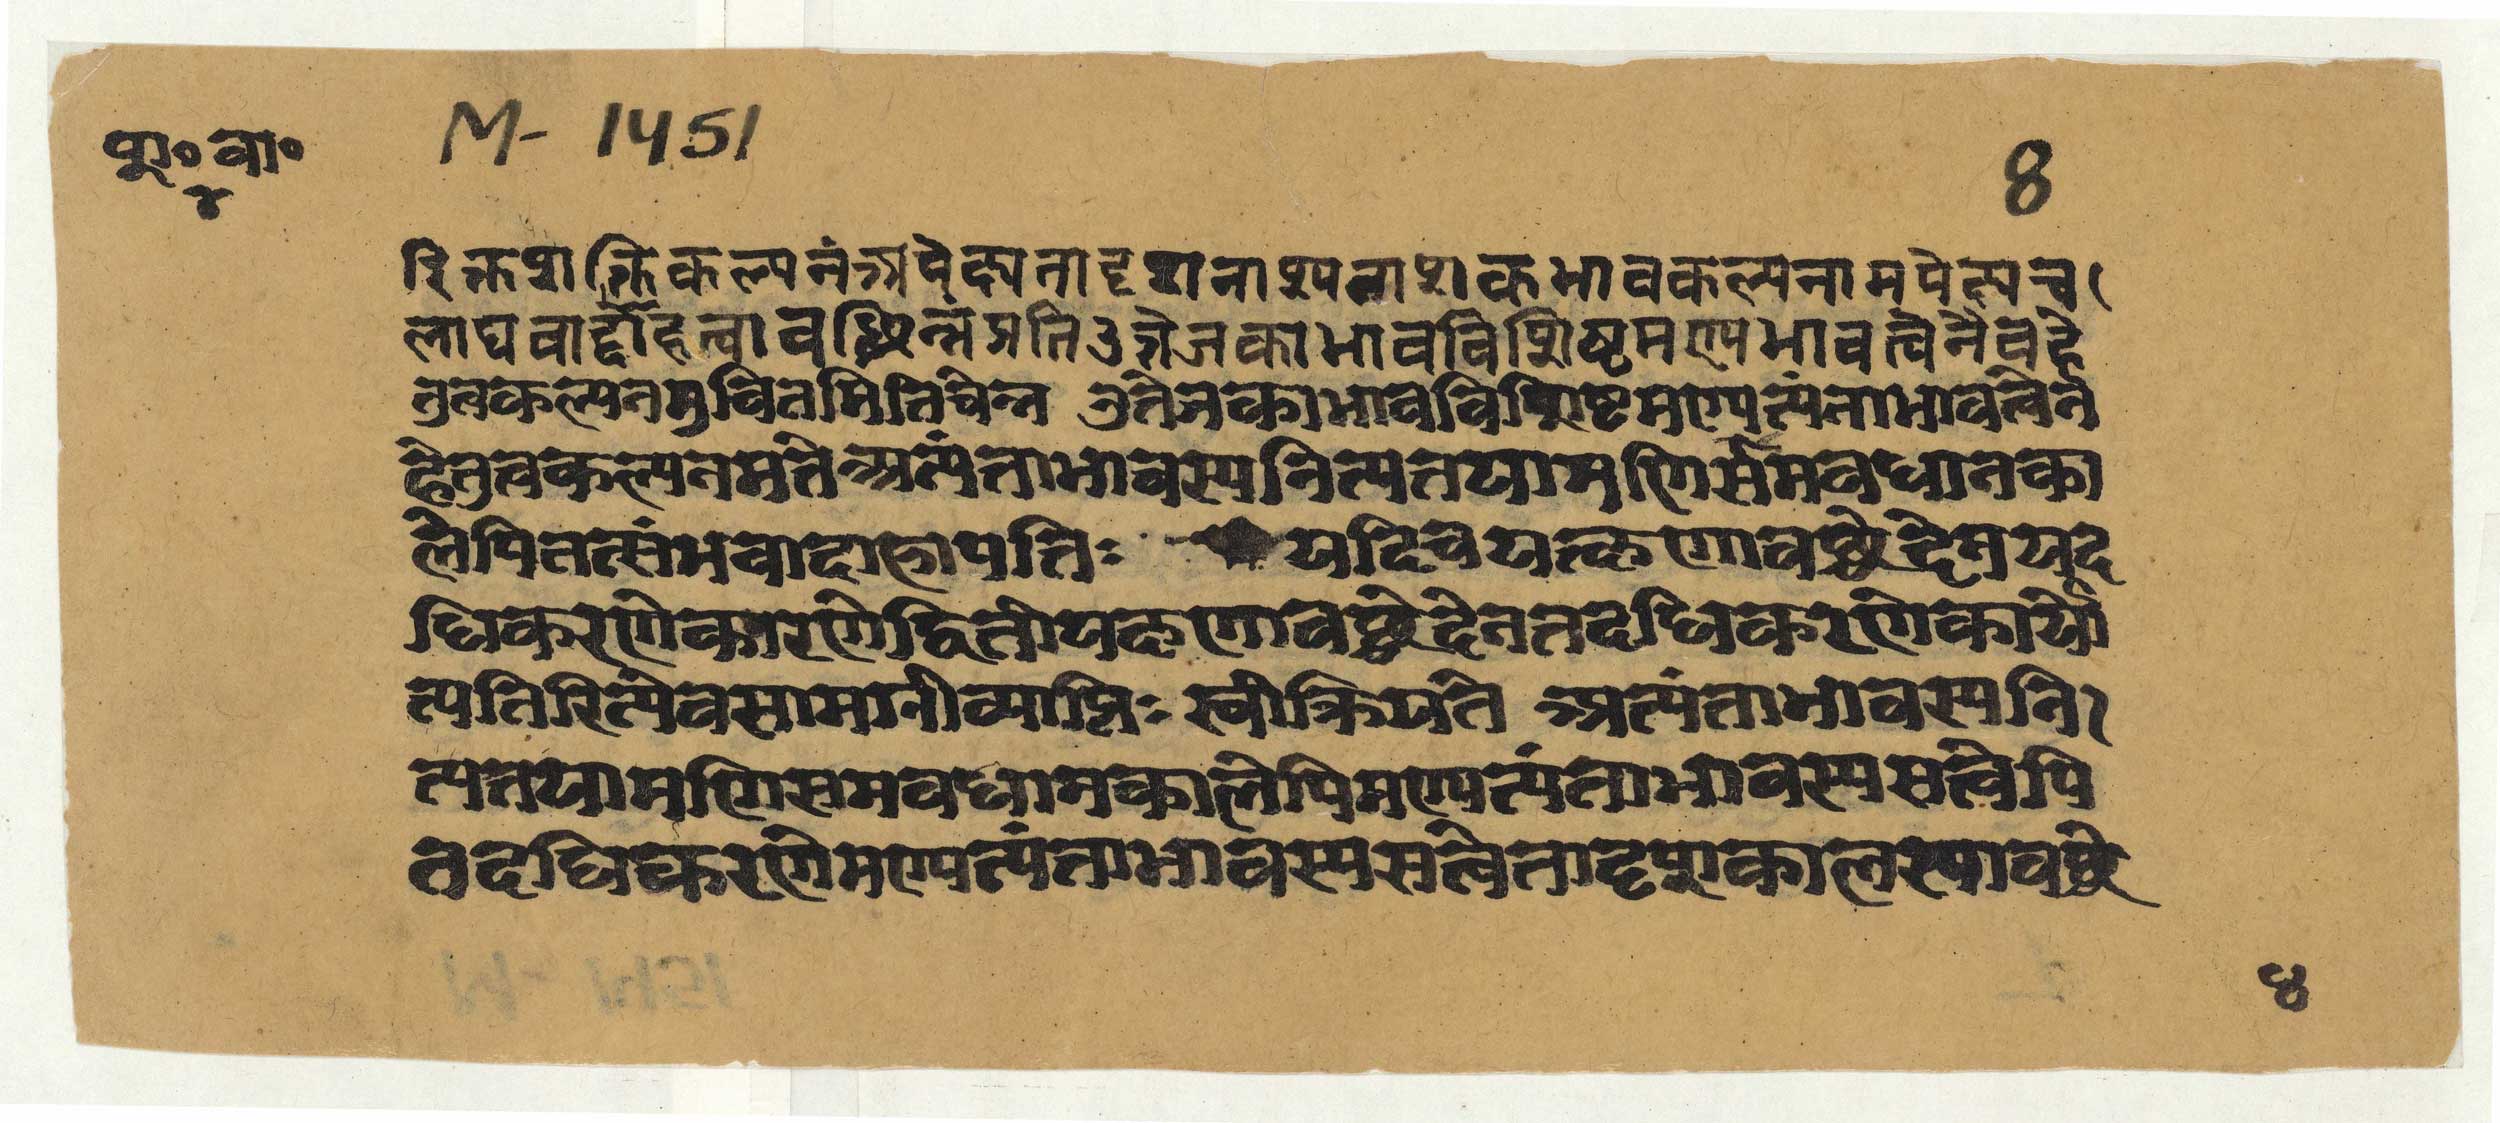 शु॰ वा॰
४
M- 1451
8
रिक्तशक्तिकल्पनंअपेक्ष्यतादृशनाश्यनाशकभावकल्पनामपेक्ष्यच।
लाघवाद्दाहत्वावच्छिन्नंप्रतिउत्तेजकाभावविशिष्टमण्यभावत्वेनैवहे
तुत्वकल्पनमुचितमितिचेन्न उत्तेजकाभावविशिष्टमण्यत्यंताभावत्वेन
हेतुत्वकल्पनमतेअत्यंताभावस्यनित्यतयामणिसमवधानका
लेपितत्संभवाद्दाहापत्तिः यदिचयत्क्षणावच्छेदेनयद
धिकरणेकारणंद्वितीयक्षणावच्छेदेनतदधिकरणेकार्यो
त्पतिरित्येवसामानीव्याप्तिः स्वीक्रियते अत्यंताभावस्यनि।
त्यतयामणिसमवधानकालेपिमण्यत्यंताभावस्यसत्वेपि
तदधिकरणेमण्यत्यंताभावस्यसत्वेतादृशकालस्यावच्छे
४